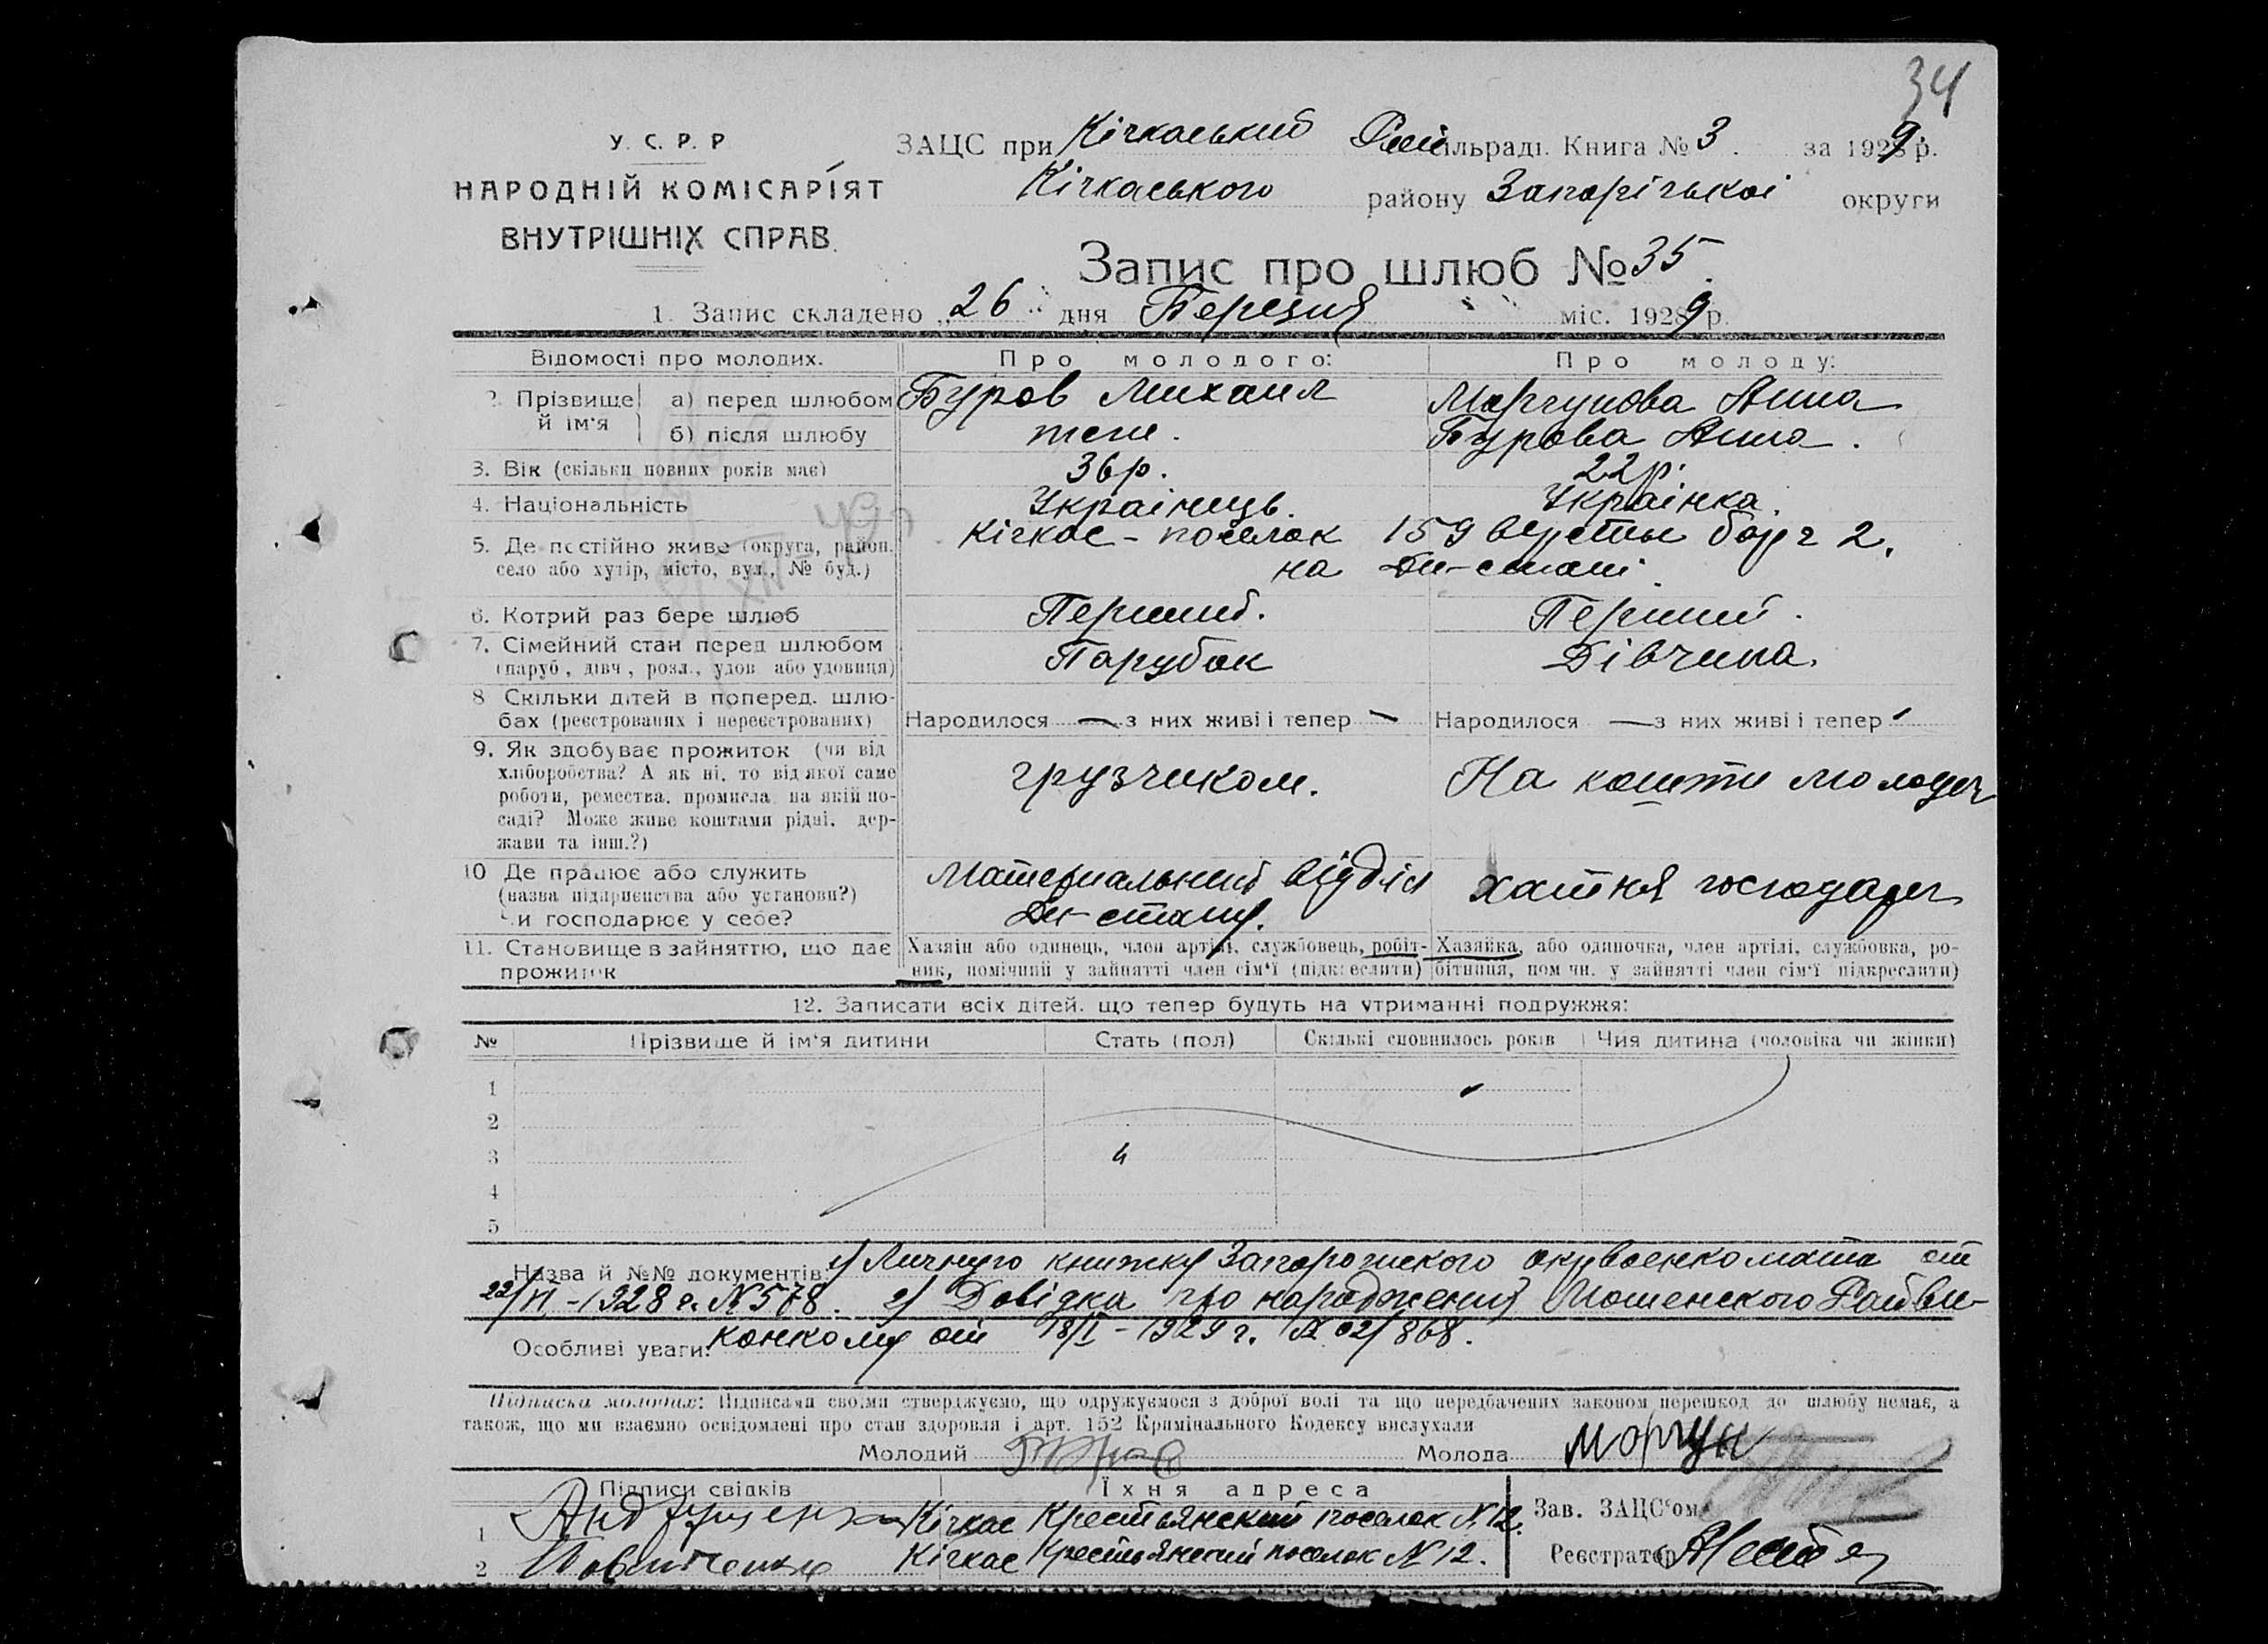 34
У. С. Р. Р
НАРОДНІЙ КОМІСАРІЯТ
ВНУТРІШНІХ СПРАВ.
ЗАЦС при Кічкаський сільраді. Книга № 3. за 1929 р.
Кічкаського району Запорізькоі округи
Запис про шлюб № 35.
1. Запис складено „26" дня Березня міс. 1929 р.
Відомості про молодих. Про молодого: Про молоду:
2. Прізвище й ім'я а) перед шлюбом Буров Михаил Моргунова Анна
б) після шлюбу теж. Бурова Анна.
3. Вік (скільки повних років має) 36 р. 22 р.
4. Національність Украінець. Украінка.
5. Де постійно живе (округа, район, Кічкас - поселок 159 версты 2.
село або хутір, місто, вул., № буд.) на
6. Котрий раз бере шлюб Перший. Перший.
7. Сімейний стан перед шлюбом Парубок Дівчина.
(паруб., дівч., розл., удов. або удовиця)
8 Скільки дітей в поперед. шлю-
бах (реєстрованих і нереєстрованих) Народилося — з них живі і тепер — Народилося — з них живі і тепер
9. Як здобуває прожиток (чи від
хліборобства? А як ні, то від якої саме грузчиком. На кошти молодог
роботи, ремества, промисла, на якій по-
саді? Може живе коштами рідні, дер-
жави та інш.?)
10 Де працює або служить Материальний відділ хатня господарч
(назва підприємства або установи?)
Чи господарює у себе?
11. Становище в зайняттю, що дає Хазяїн або одинець, член артілі, службовець, робіт- Хазяйка, або одиночка, член артілі, службовка, ро-
прожиток ник, помічний у зайнятті член сім'ї (підкреслити) бітниця, помічн. у зайнятті член сім'ї підкреслити)
12. Записати всіх дітей, що тепер будуть на утриманні подружжя:
№ Прізвище й ім'я дитини Стать (пол) Скількі сповнилось років Чия дитина (чоловіка чи жінки)
1
2
3
4
5
Назва й №№ документів: 1) Личную книжку Запорожского окрвоенкомата от
22/VI-1928 г. № 578. 2) Довідка про народження Райви-
Особливі уваги: конкому от 18/I - 1929 г. № 02/868.
Підписка молодих: Підписами своїми стверджуємо, що одружуємося з доброї волі та що передбачених законом перешкод до шлюбу немає, а
також, що ми взаємно освідомлені про стан здоровля і арт. 152 Кримінального Кодексу вислухали
Молодий Молода Моргун
Підписи свідків Їхня адреса
1 Андрущенко Кічкас Крестьянский поселок № 12. Зав. ЗАЦС'ом
2 Кічкас Крестьянский поселок № 12. Реєстратор